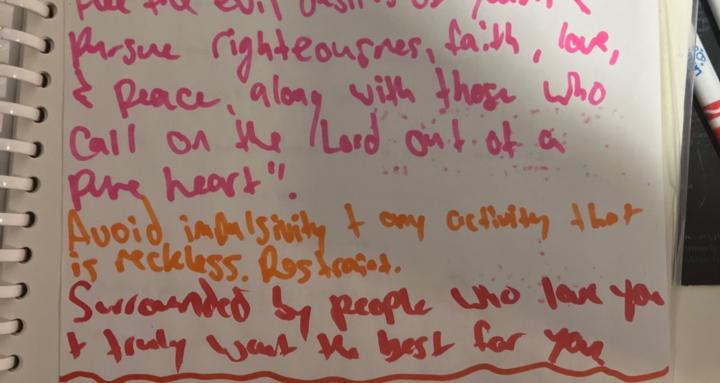 flee the evil desires of youth &
pursue righteousness, faith, love,
& peace, along with those who
call on the Lord out of a
pure heart".
Avoid impulsivity + any activity that
is reckless. Restraint.
Surrounded by people who love you
+ truly want the best for you